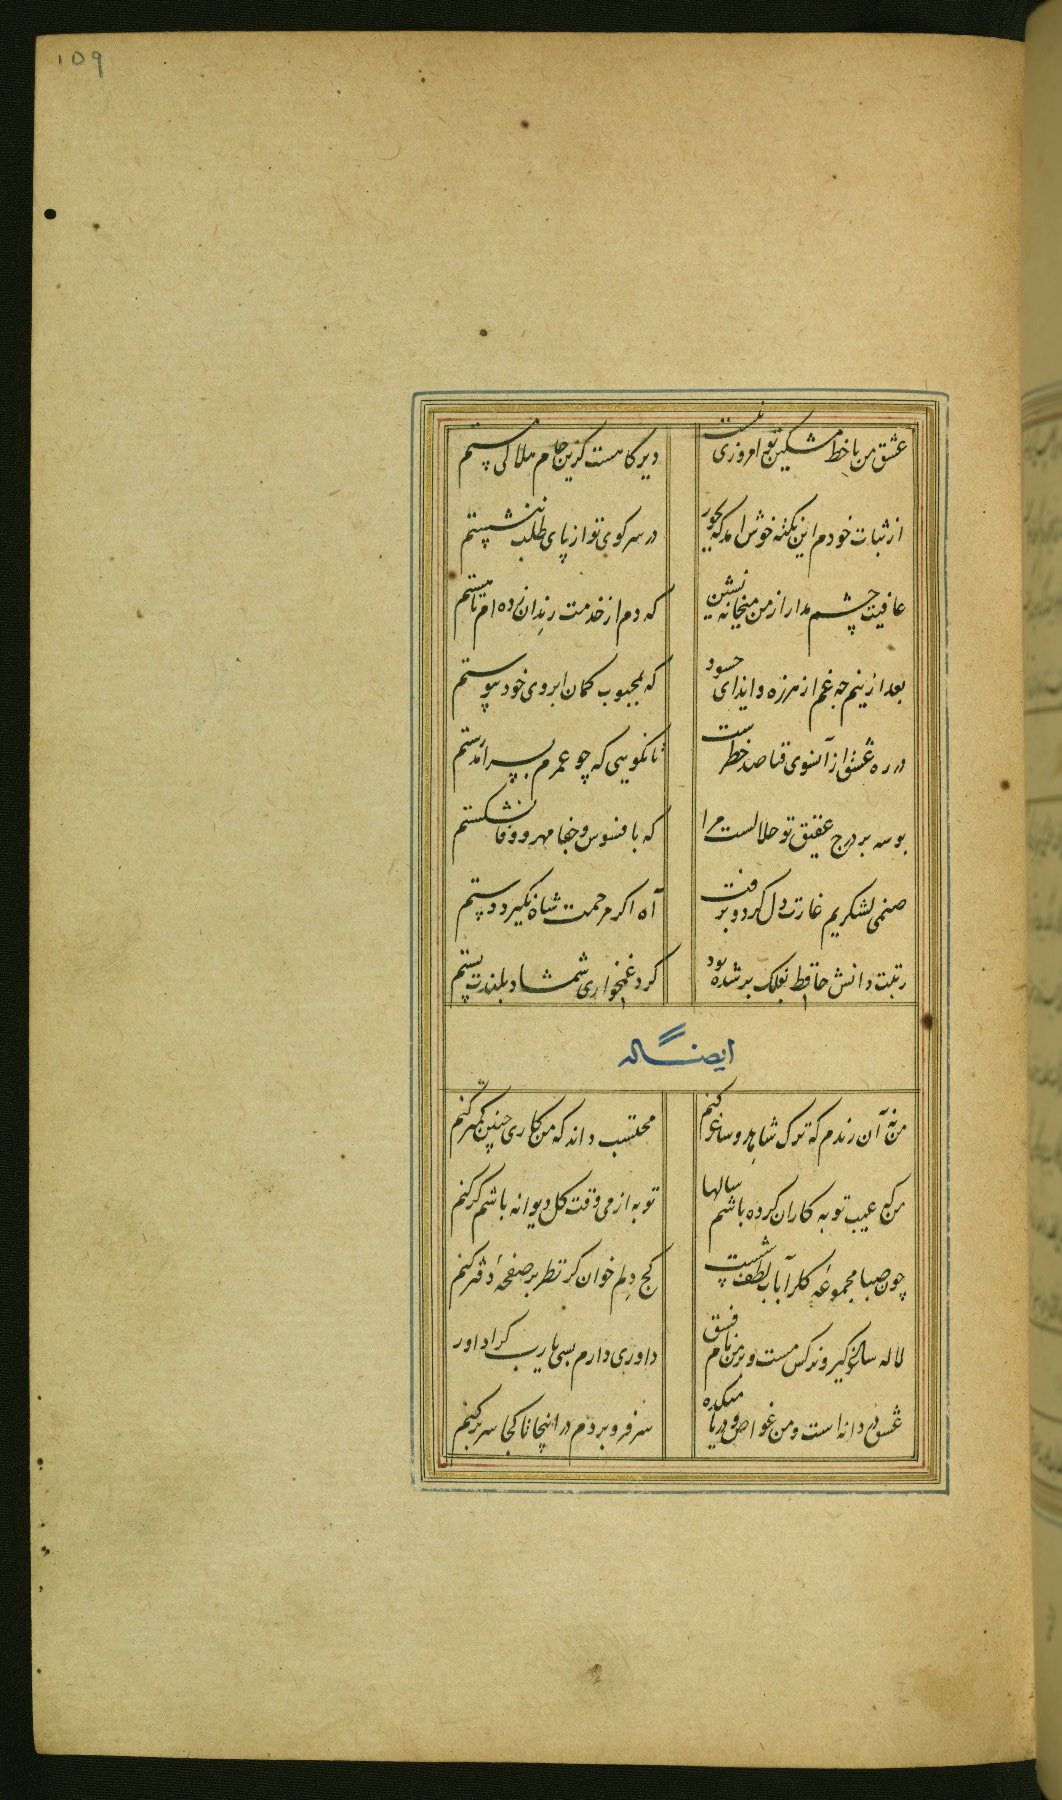 ۱۵۹
عشق من با خط مشکین تو امروزی نیست
دیر کاهست کزین جام هلالی مستم
از ثبات خودم این نکته خوش امد که بجور
در سر کوی تو از پای طلب ننشستم
عافیت چشم مدار از من میخانه نشین
که دم از خدمت رندان زده ام تا هستم
بعد ازینم چه غم از هرزه و ایذای حسود
که بمحبوب کمان ابروی خود پیوستم
در ره عشق از آنسوی فنا صد خطرست
تا نگویی که چو عمرم بسر امد رستم
بوسه بر درج عقیق تو حلالست مرا
که بافسوس و جفا مهر و وفا نشکستم
صنمی لشکریم غارت دل کرد و برفت
آه اگر مرحمت شاه نگیرد دستم
رتبت دانش حافظ بفلک بر شده بود
کرد غمخواری شمشاد بلندت پستم
ایضاله
من نه آن رندم که ترک شاهد و ساغر کنم
محتسب داند که من کاری چنین کمتر کنم
من که عیب توبه کاران کرده باشم سالها
توبه از می وقت گل دیوانه باشم گر کنم
چون صبا مجموعهٔ گل را بآب لطف شست
کج دلم خوان گر نظر بر صفحهٔ دفتر کنم
لاله ساغرگیر و نرگس مست و بر من نام فسق
داوری دارم بسی یارب کرا داور
عشق دردانه است و من غواص و دریا میکده
سر فرو بردم در اینجا تا کجا سر بر کنم